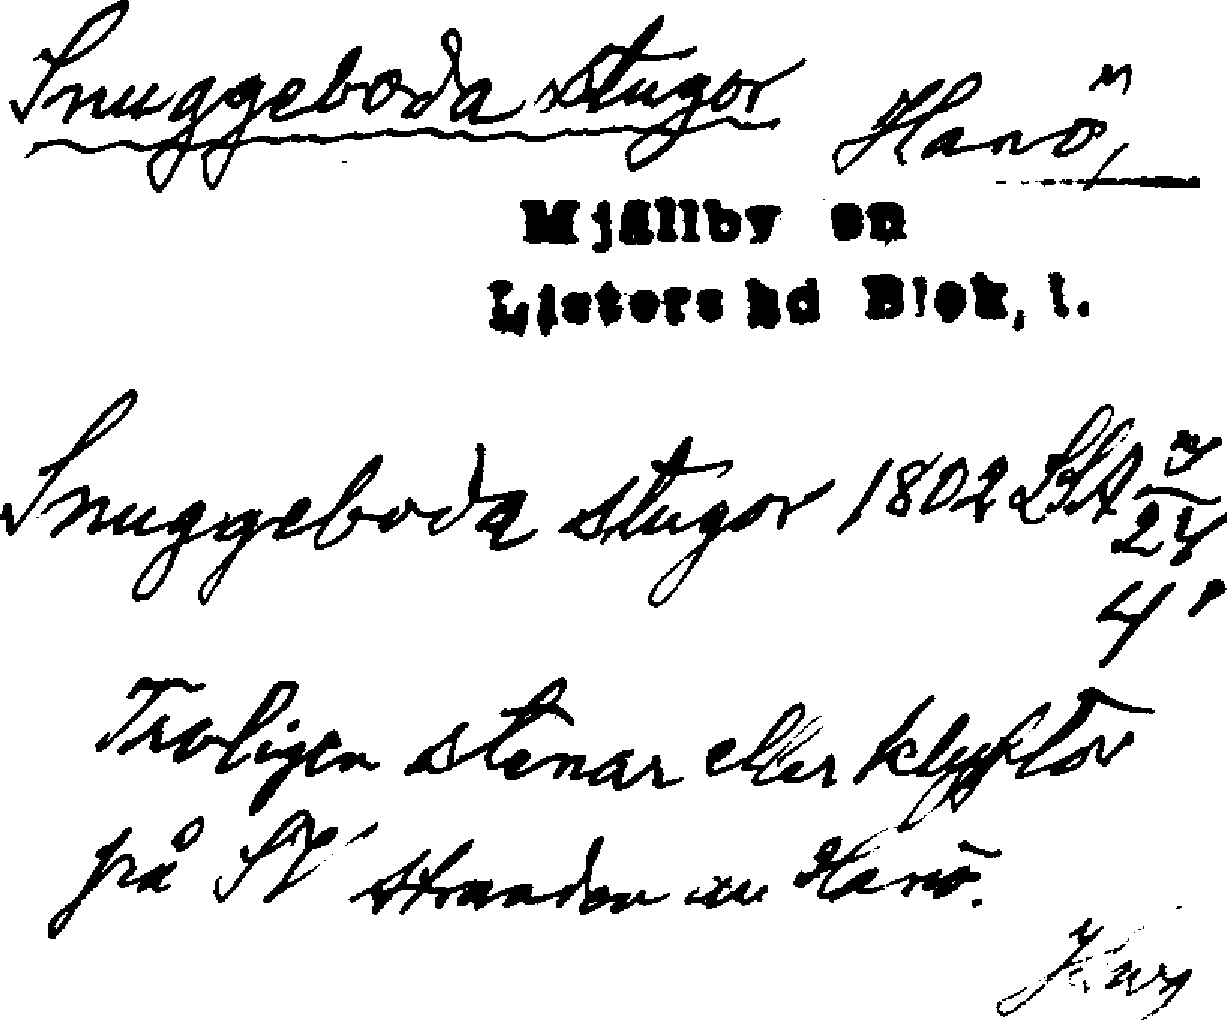 Snuggeboda stugor Hanö,
Mjällby sn
Listers hd Blek, l.
Snuggeboda stugor 1802
4'
Troligen stenar eller klyftor
på SV stranden av Hanö.